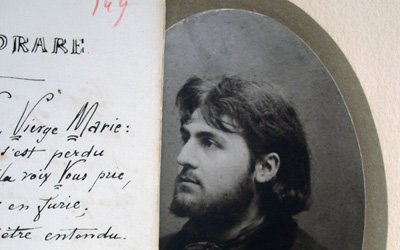 149
ORARE
Vierge Marie:
s'est perdu
la voix Vous prie,
en furie;
être entendu.